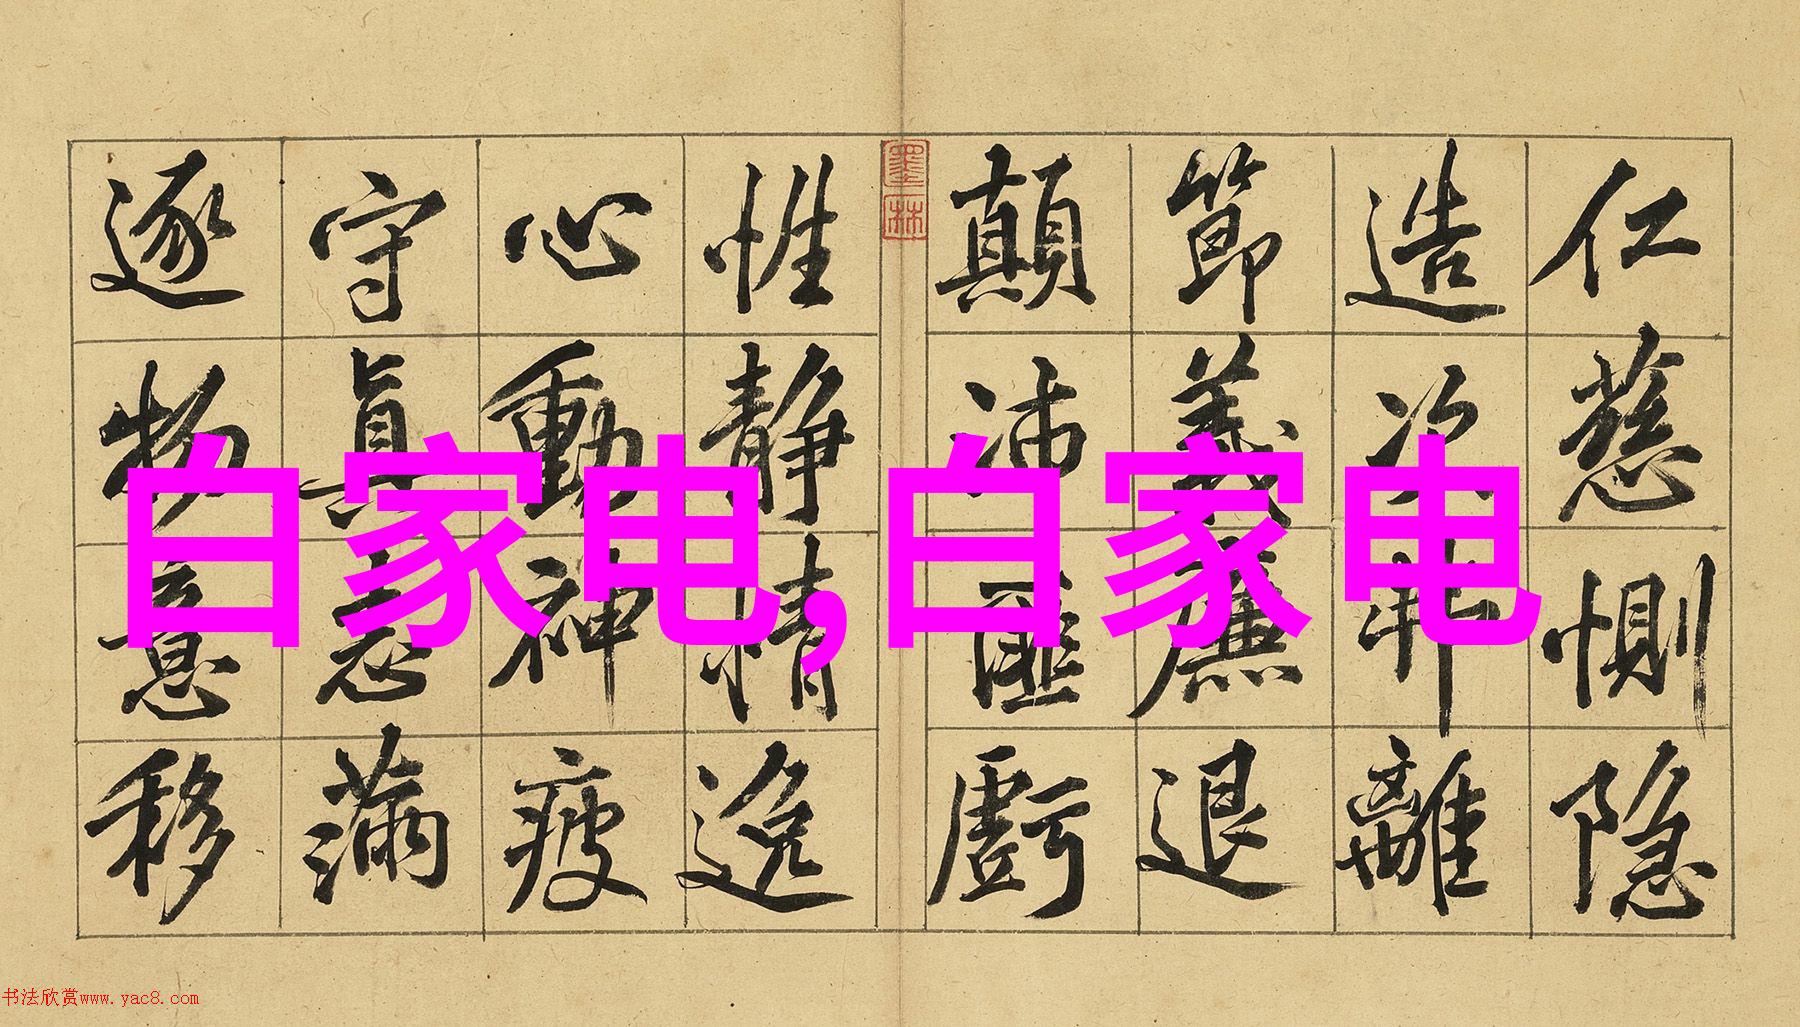 仁慈惻隐
造次弗離
節義廉退
顛沛匪虧
墨林
性静情逸
心動神疲
守真志滿
逐物意移
白家电,白家电
书法欣赏www.yac8.com